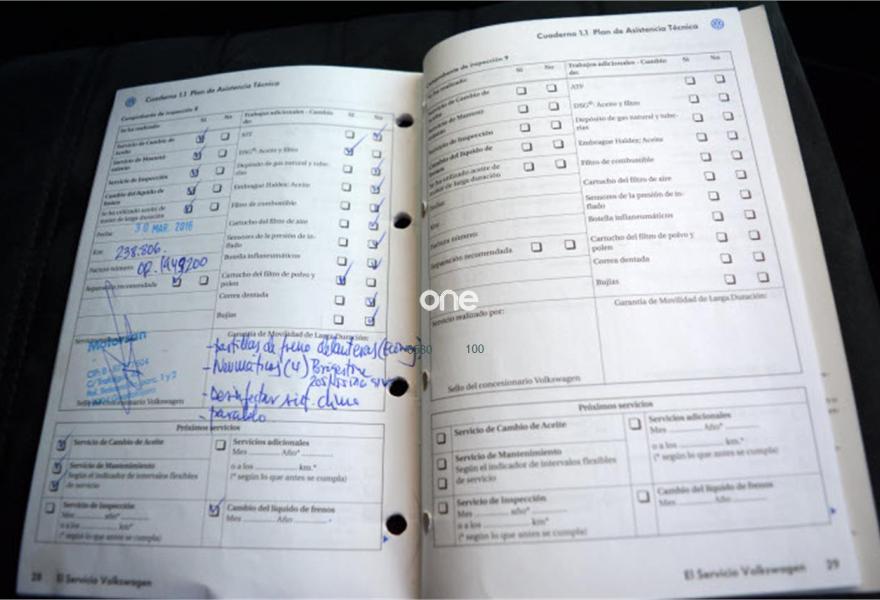 Cuaderno 1.1 Plan de Asistencia Técnica
Comprobante de inspección 8
Se ha realizado: Sí No
Servicio de Cambio de Aceite
Servicio de Mantenimiento
Servicio de Inspección
Cambio del líquido de frenos
Se ha utilizado aceite de motor de larga duración
Fecha: 30 MAR. 2016
Km: 238.806.
Factura número:
Reparación recomendada
Trabajos adicionales - Cambio de: Sí No
ATF
DSG®: Aceite y filtro
Depósito de gas natural y tuberías
Embrague Haldex: Aceite
Filtro de combustible
Cartucho del filtro de aire
Sensores de la presión de inflado
Botella inflaneumáticos
Cartucho del filtro de polvo y polen
Correa dentada
Bujías
Garantía de Movilidad de Larga Duración:
Motorsan
- pastillas de freno delanteras
- Neumáticos (4)
- Desinfectar sist. clima
Sello del concesionario Volkswagen
Próximos servicios
Servicio de Cambio de Aceite
Servicio de Mantenimiento
Según el indicador de intervalos flexibles
de servicio
Servicio de Inspección
Mes año*
o a los km*
(* según lo que antes se cumpla)
Servicios adicionales
Mes Año*
o a los km.*
(* según lo que antes se cumpla)
Cambio del líquido de frenos
Mes Año
28 El Servicio Volkswagen
Cuaderno 1.1 Plan de Asistencia Técnica
Comprobante de inspección 9
Se ha realizado: Sí No
Servicio de Cambio de Aceite
Servicio de Mantenimiento
Servicio de Inspección
Cambio del líquido de frenos
Se ha utilizado aceite de motor de larga duración
Fecha:
Km:
Factura número:
Reparación recomendada
Trabajos adicionales - Cambio de: Sí No
ATF
DSG®: Aceite y filtro
Depósito de gas natural y tuberías
Embrague Haldex: Aceite
Filtro de combustible
Cartucho del filtro de aire
Sensores de la presión de inflado
Botella inflaneumáticos
Cartucho del filtro de polvo y polen
Correa dentada
Bujías
Servicio realizado por:
Garantía de Movilidad de Larga Duración:
Sello del concesionario Volkswagen
Próximos servicios
Servicio de Cambio de Aceite
Servicio de Mantenimiento
Según el indicador de intervalos flexibles
de servicio
Servicio de Inspección
Mes año*
o a los km*
(* según lo que antes se cumpla)
Servicios adicionales
Mes Año*
o a los km.*
(* según lo que antes se cumpla)
Cambio del líquido de frenos
Mes Año
El Servicio Volkswagen 29
one
100